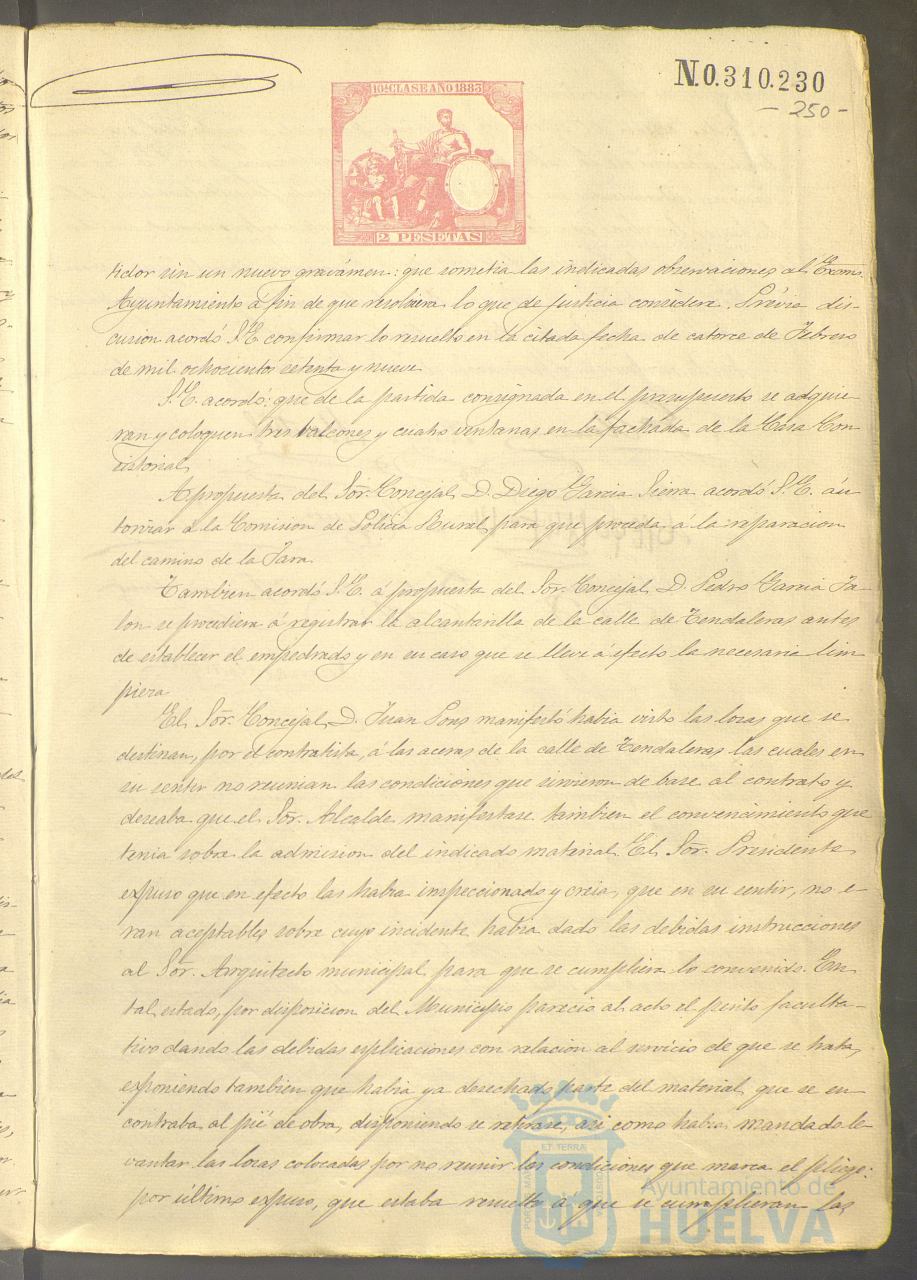 10ª CLASE AÑO 1883
N.0.310.230
- 250 -
2 PESETAS
tidor sin un nuevo gravámen: que sometia las indicadas observaciones al Excmo.
Ayuntamiento á fin de que resolviera lo que de justicia considere. Prévia dis-
cusion acordó S.E. confirmar lo resuelto en la citada fecha de catorce de Febrero
de mil ochocientos setenta y nueve.
S.E. acordó: que de la partida consignada en el presupuesto se adquie-
ran y coloquen tres balcones y cuatro ventanas en la fachada de la Casa Con-
sistorial.
A propuesta del Sor. Concejal D. Diego Garcia Sierra acordó S.E. áu-
torizar á la Comision de Policia Rural para que proceda á la reparacion
del camino de la Jara.
Tambien acordó S.E. á propuesta del Sor. Concejal D. Pedro Garcia Ja-
lon se procediera á registrar la alcantarilla de la calle de Tendaleras antes
de establecer el empedrado y en su caso que se lleve á efecto la necesaria lim
pieza
El Sor. Concejal D. Juan Pons manifestó habia visto las lozas que se
destinan, por el contratista, á las aceras de la calle de Tendaleras, las cuales en
su sentir no reunian las condiciones que sirvieron de base al contrato y
deseaba que el Sor. Alcalde manifestase tambien el convencimiento que
tenia sobre la admision del indicado material. El Sor. Presidente
expuso que en efecto las habia inspeccionado y creia, que en su sentir, no e-
ran aceptables sobre cuyo incidente habia dado las debidas instrucciones
al Sor. Arquitecto municipal para que se cumpliera lo convenido. En
tal estado, por disposicion del Municipio pareció al acto el perito faculta-
tivo dando las debidas esplicaciones con relacion al servicio de que se trata,
exponiendo tambien que habia ya desechado parte del material que se en
contraba al pié de obra, disponiendo se retirase, asi como habia mandado le-
vantar las lozas colocadas por no reunir las condiciones que marca el pliego:
por último expuso, que estaba resuelto á que se cumplieran las
Ayuntamiento de
HUELVA